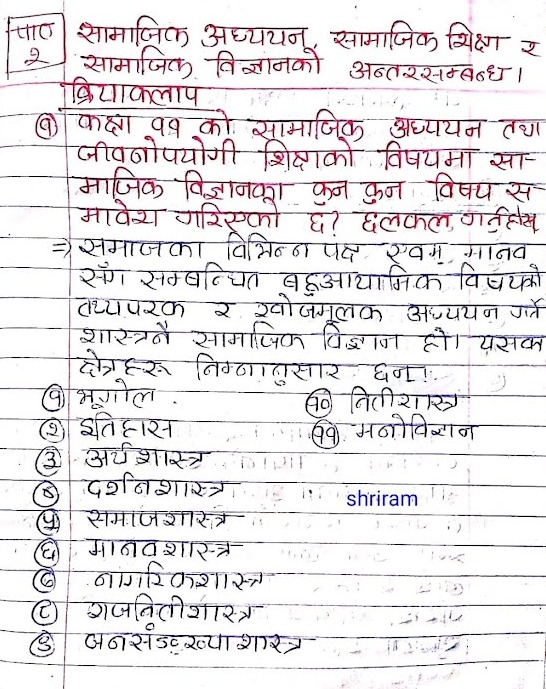 पाठ २
सामाजिक अध्ययन, सामाजिक शिक्षा र
सामाजिक विज्ञानको अन्तरसम्बन्ध।
क्रियाकलाप
(१) कक्षा ११ को सामाजिक अध्ययन तथा
जीवनोपयोगी शिक्षाको विषयमा सा-
माजिक विज्ञानका कुन कुन विषय स
मावेश गरिएको छ? छलफल गर्नुहोस्
=> समाजका विभिन्न पक्ष एवम् मानव
सँग सम्बन्धित बहुआयामिक विषयको
तथ्यपरक र खोजमूलक अध्ययन गर्ने
शास्त्रनै सामाजिक विज्ञान हो। यसका
क्षेत्रहरू निम्नानुसार छन्।
(१) भूगोल
(२) इतिहास
(३) अर्थशास्त्र
(४) दर्शनशास्त्र
(५) समाजशास्त्र
(६) मानवशास्त्र
(७) नागरिकशास्त्र
(८) राजनितीशास्त्र
(९) जनसंङ्ख्याशास्त्र
(१०) नितीशास्त्र
(११) मनोविज्ञान
shriram